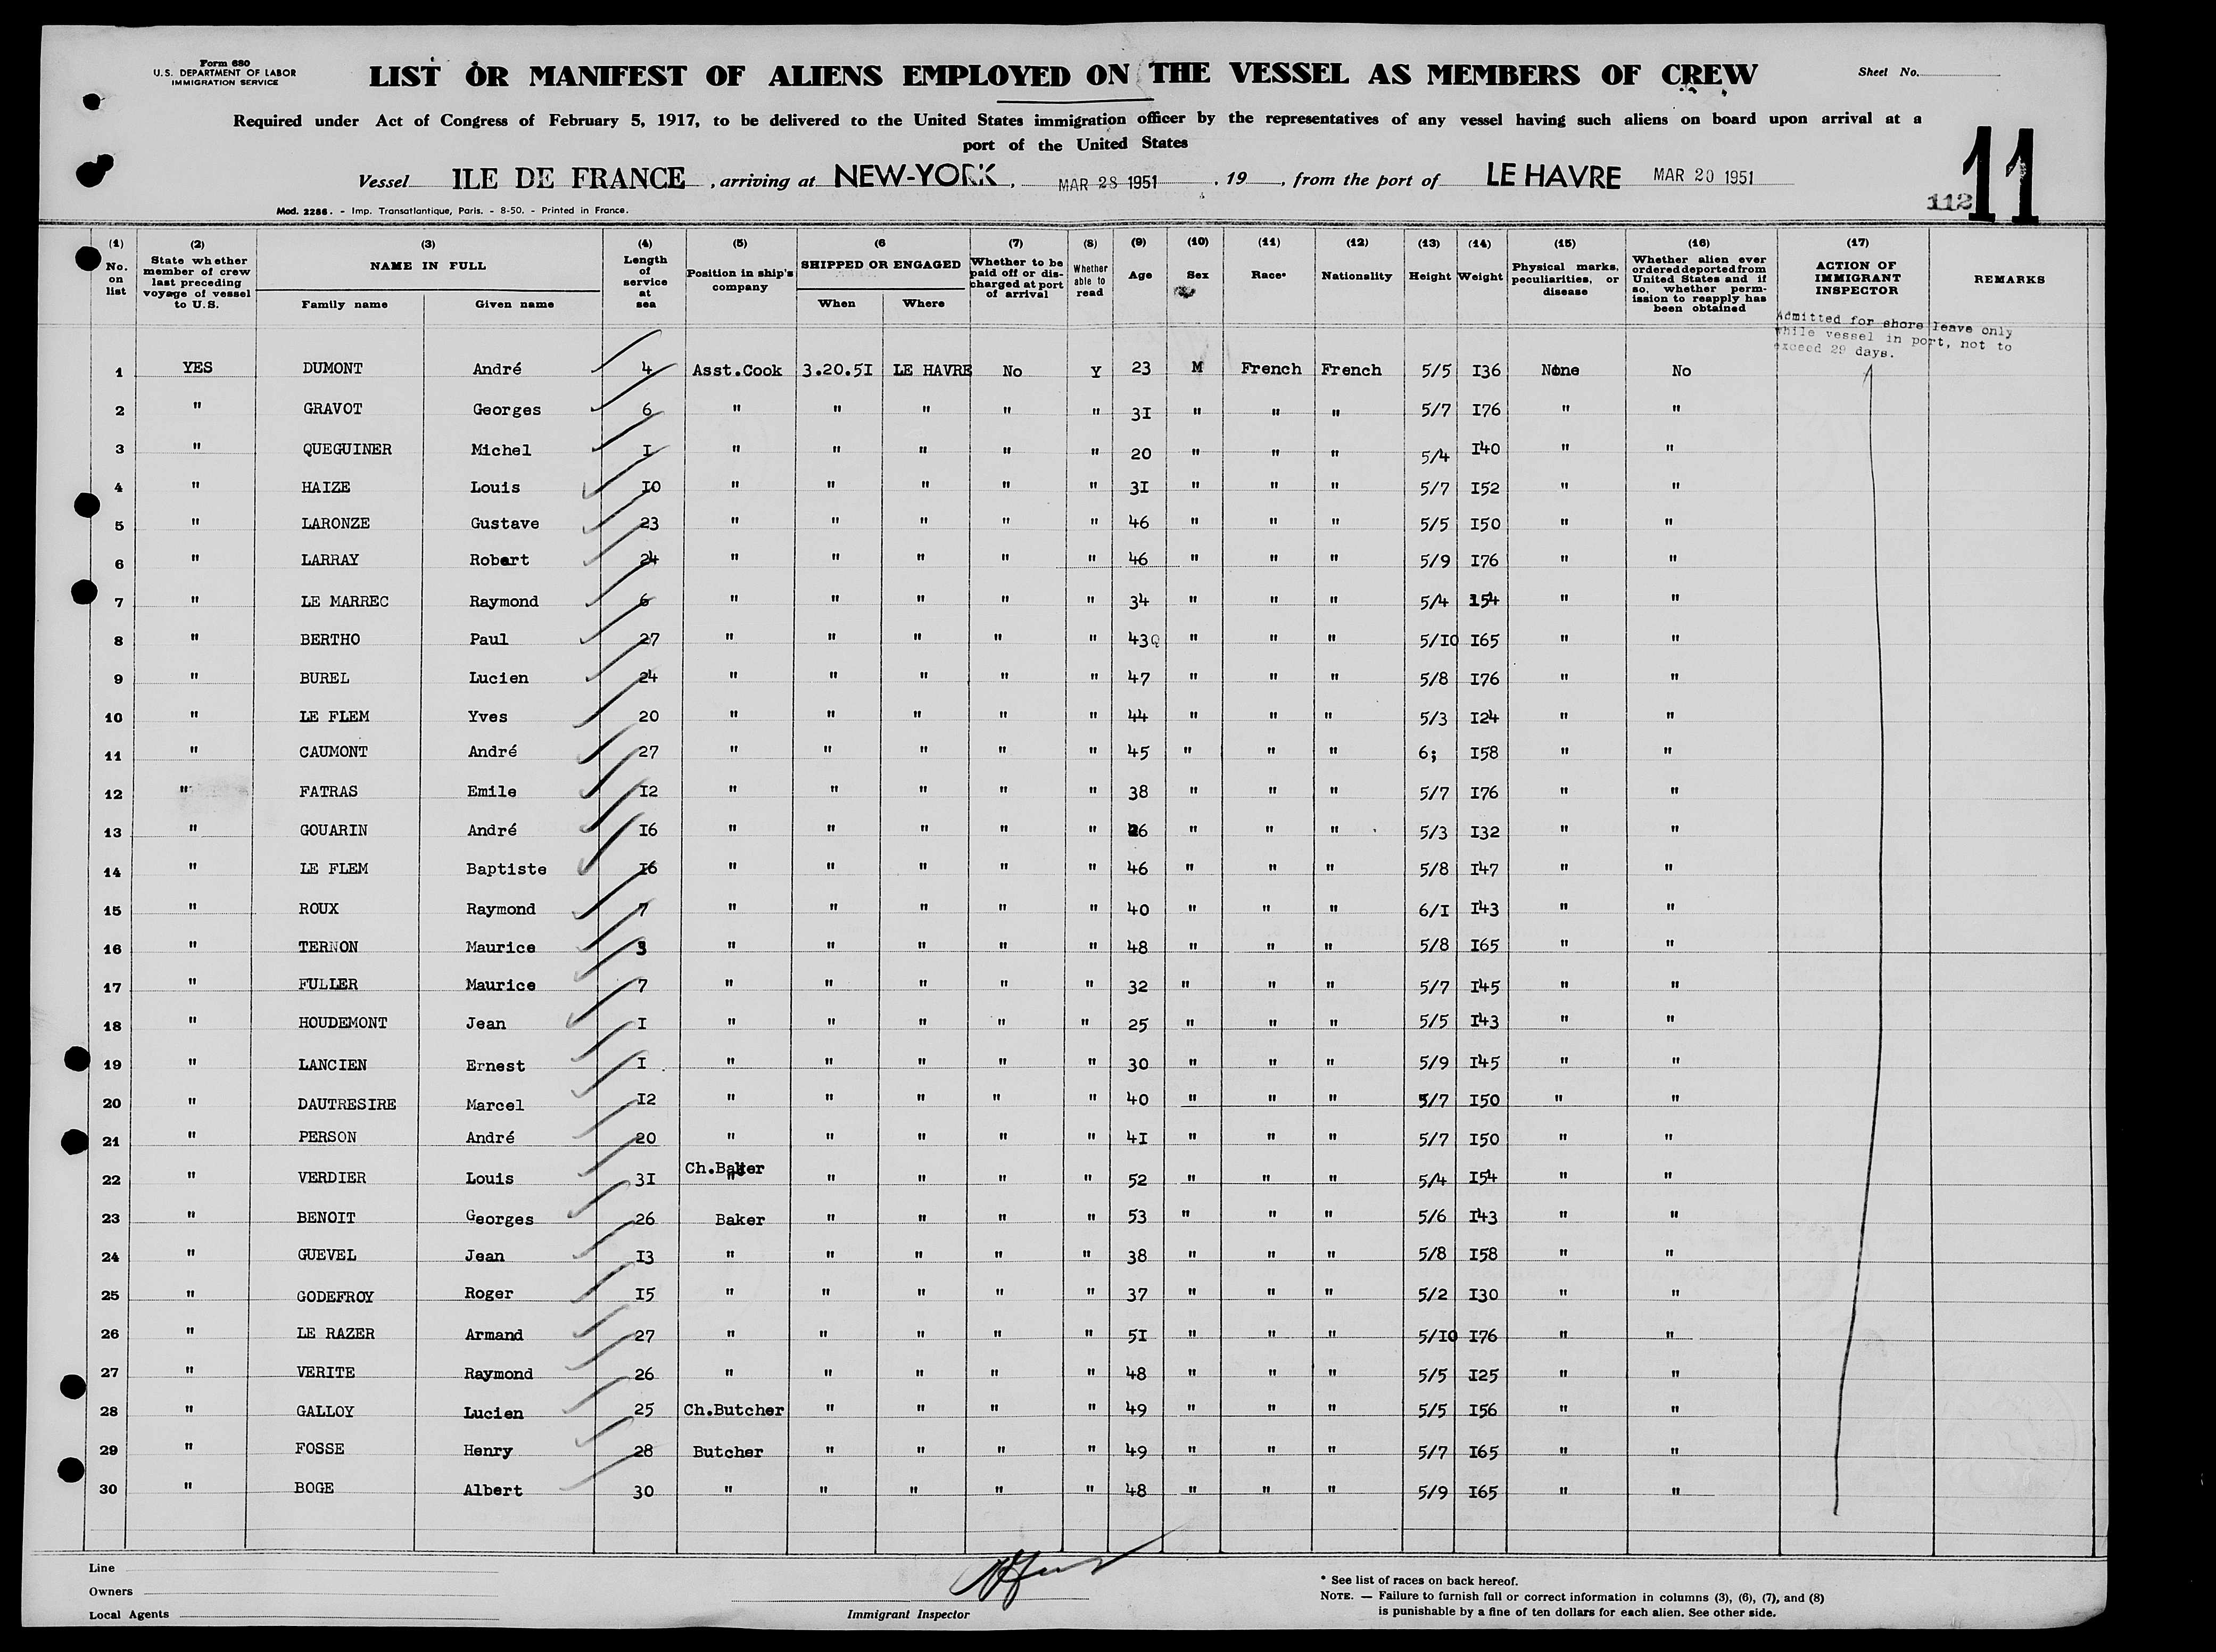 Form 680
U.S. DEPARTMENT OF LABOR
IMMIGRATION SERVICE
LIST OR MANIFEST OF ALIENS EMPLOYED ON THE VESSEL AS MEMBERS OF CREW
Sheet No.
Required under Act of Congress of February 5, 1917, to be delivered to the United States immigration officer by the representatives of any vessel having such aliens on board upon arrival at a
port of the United States
11
Vessel ILE DE FRANCE, arriving at NEW-YORK, MAR 28 1951, 19, from the port of LE HAVRE MAR 20 1951
112
Mod. 2286. - Imp. Transatlantique, Paris. - 8-50. - Printed in France.
(1) No. on list (2) State whether member of crew last preceding voyage of vessel to U.S. (3) NAME IN FULL Family name Given name (4) Length of service at sea (5) Position in ship's company (6 SHIPPED OR ENGAGED When Where (7) Whether to be paid off or discharged at port of arrival (8) Whether able to read (9) Age (10) Sex (11) Race* (12) Nationality (13) Height (14) Weight (15) Physical marks, peculiarities, or disease (16) Whether alien ever ordered deported from United States and if so, whether permission to reapply has been obtained (17) ACTION OF IMMIGRANT INSPECTOR REMARKS
Admitted for shore leave only
while vessel in port, not to
exceed 29 days.
1 YES DUMONT André 4 Asst.Cook 3.20.5I LE HAVRE No Y 23 M French French 5/5 I36 None No
2 " GRAVOT Georges 6 " " " " " 3I " " " 5/7 I76 " "
3 " QUEGUINER Michel I " " " " " 20 " " " 5/4 I40 " "
4 " HAIZE Louis I0 " " " " " 3I " " " 5/7 I52 " "
5 " LARONZE Gustave 23 " " " " " 46 " " " 5/5 I50 " "
6 " LARRAY Robert 24 " " " " " 46 " " " 5/9 I76 " "
7 " LE MARREC Raymond 6 " " " " " 34 " " " 5/4 154 " "
8 " BERTHO Paul 27 " " " " " 43 " " " 5/I0 I65 " "
9 " BUREL Lucien 24 " " " " " 47 " " " 5/8 I76 " "
10 " LE FLEM Yves 20 " " " " " 44 " " " 5/3 I24 " "
11 " CAUMONT André 27 " " " " " 45 " " " 6; I58 " "
12 " FATRAS Emile I2 " " " " " 38 " " " 5/7 I76 " "
13 " GOUARIN André I6 " " " " " " " " 5/3 I32 " "
14 " LE FLEM Baptiste I6 " " " " " 46 " " " 5/8 I47 " "
15 " ROUX Raymond 7 " " " " " 40 " " " 6/I I43 " "
16 " TERNON Maurice 3 " " " " " 48 " " " 5/8 I65 " "
17 " FULLER Maurice 7 " " " " " 32 " " " 5/7 I45 " "
18 " HOUDEMONT Jean I " " " " " 25 " " " 5/5 I43 " "
19 " LANCIEN Ernest I " " " " " 30 " " " 5/9 I45 " "
20 " DAUTRESIRE Marcel I2 " " " " " 40 " " " 5/7 I50 " "
21 " PERSON André 20 " " " " " 4I " " " 5/7 I50 " "
22 " VERDIER Louis 3I Ch.Baker " " " " 52 " " " 5/4 I54 " "
23 " BENOIT Georges 26 Baker " " " " 53 " " " 5/6 I43 " "
24 " GUEVEL Jean I3 " " " " " 38 " " " 5/8 I58 " "
25 " GODEFROY Roger I5 " " " " " 37 " " " 5/2 I30 " "
26 " LE RAZER Armand 27 " " " " " 5I " " " 5/I0 I76 " "
27 " VERITE Raymond 26 " " " " " 48 " " " 5/5 I25 " "
28 " GALLOY Lucien 25 Ch.Butcher " " " " 49 " " " 5/5 I56 " "
29 " FOSSE Henry 28 Butcher " " " " 49 " " " 5/7 I65 " "
30 " BOGE Albert 30 " " " " " 48 " " " 5/9 I65 " "
Line
Owners
Local Agents
Immigrant Inspector
* See list of races on back hereof.
NOTE. — Failure to furnish full or correct information in columns (3), (6), (7), and (8)
is punishable by a fine of ten dollars for each alien. See other side.